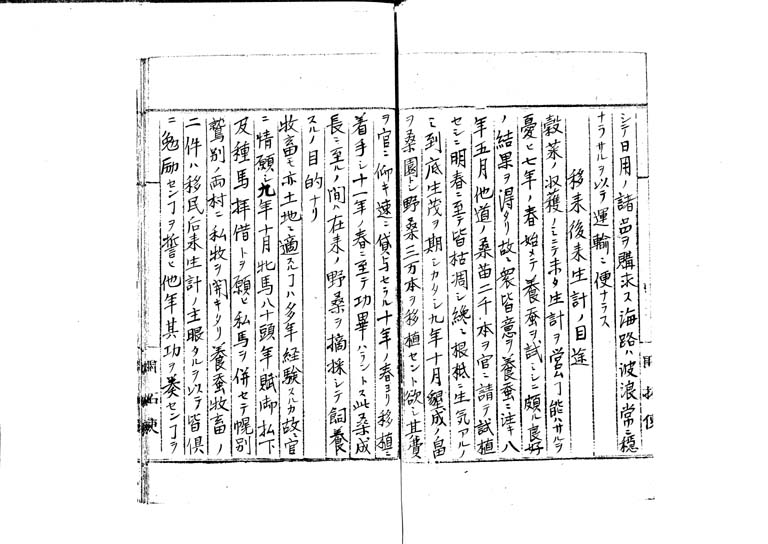 シテ日用ノ諸品ヲ購求ス海路ハ波浪常ニ穏
ナラサルヲ以テ運輸ニ便ナラス
移来後来生計ノ目途
穀菜ノ収穫ノミニテ未タ生計ヲ営ムヿ能ハサルヲ
憂ヒ七年ノ春始メテ養蚕ヲ試ミシニ頗ル良好
ノ結果ヲ得タリ故ニ衆皆意ヲ養蚕ニ注キ八
年五月他道ノ桑苗二千本ヲ官ニ請テ試植
セシニ明春ニ至テ皆枯凋シ纔ニ根柢生気アルノミ
到底生茂ヲ期シカタシ九年十月墾成ノ畠
ヲ桑園トシ野桑三万本ヲ移植セント欲シ其費
ヲ官ニ仰キ速ニ貸与セラル十年ノ春ヨリ移植ニ
着手シ十一年ノ春ニ至テ功畢ハラントス此桑成
長ニ至ルノ間ハ在来ノ野桑ヲ摘採シテ飼養
スルノ目的ナリ
牧畜モ亦土地ニ適スルヿハ多年経験スルカ故ニ官
ニ情願シ九年十月牝馬八十頭年賦御払下
及種馬拝借トヲ願ヒ私馬ヲ併セテ幌別
鷲別ノ両村ニ私牧ヲ開キタリ養蚕牧畜ノ
二件ハ移民后来生計ノ主眼タルヲ以テ皆倶
ニ勉励センヿヲ誓ヒ他年其功ヲ奏センヿヲ
開拓使